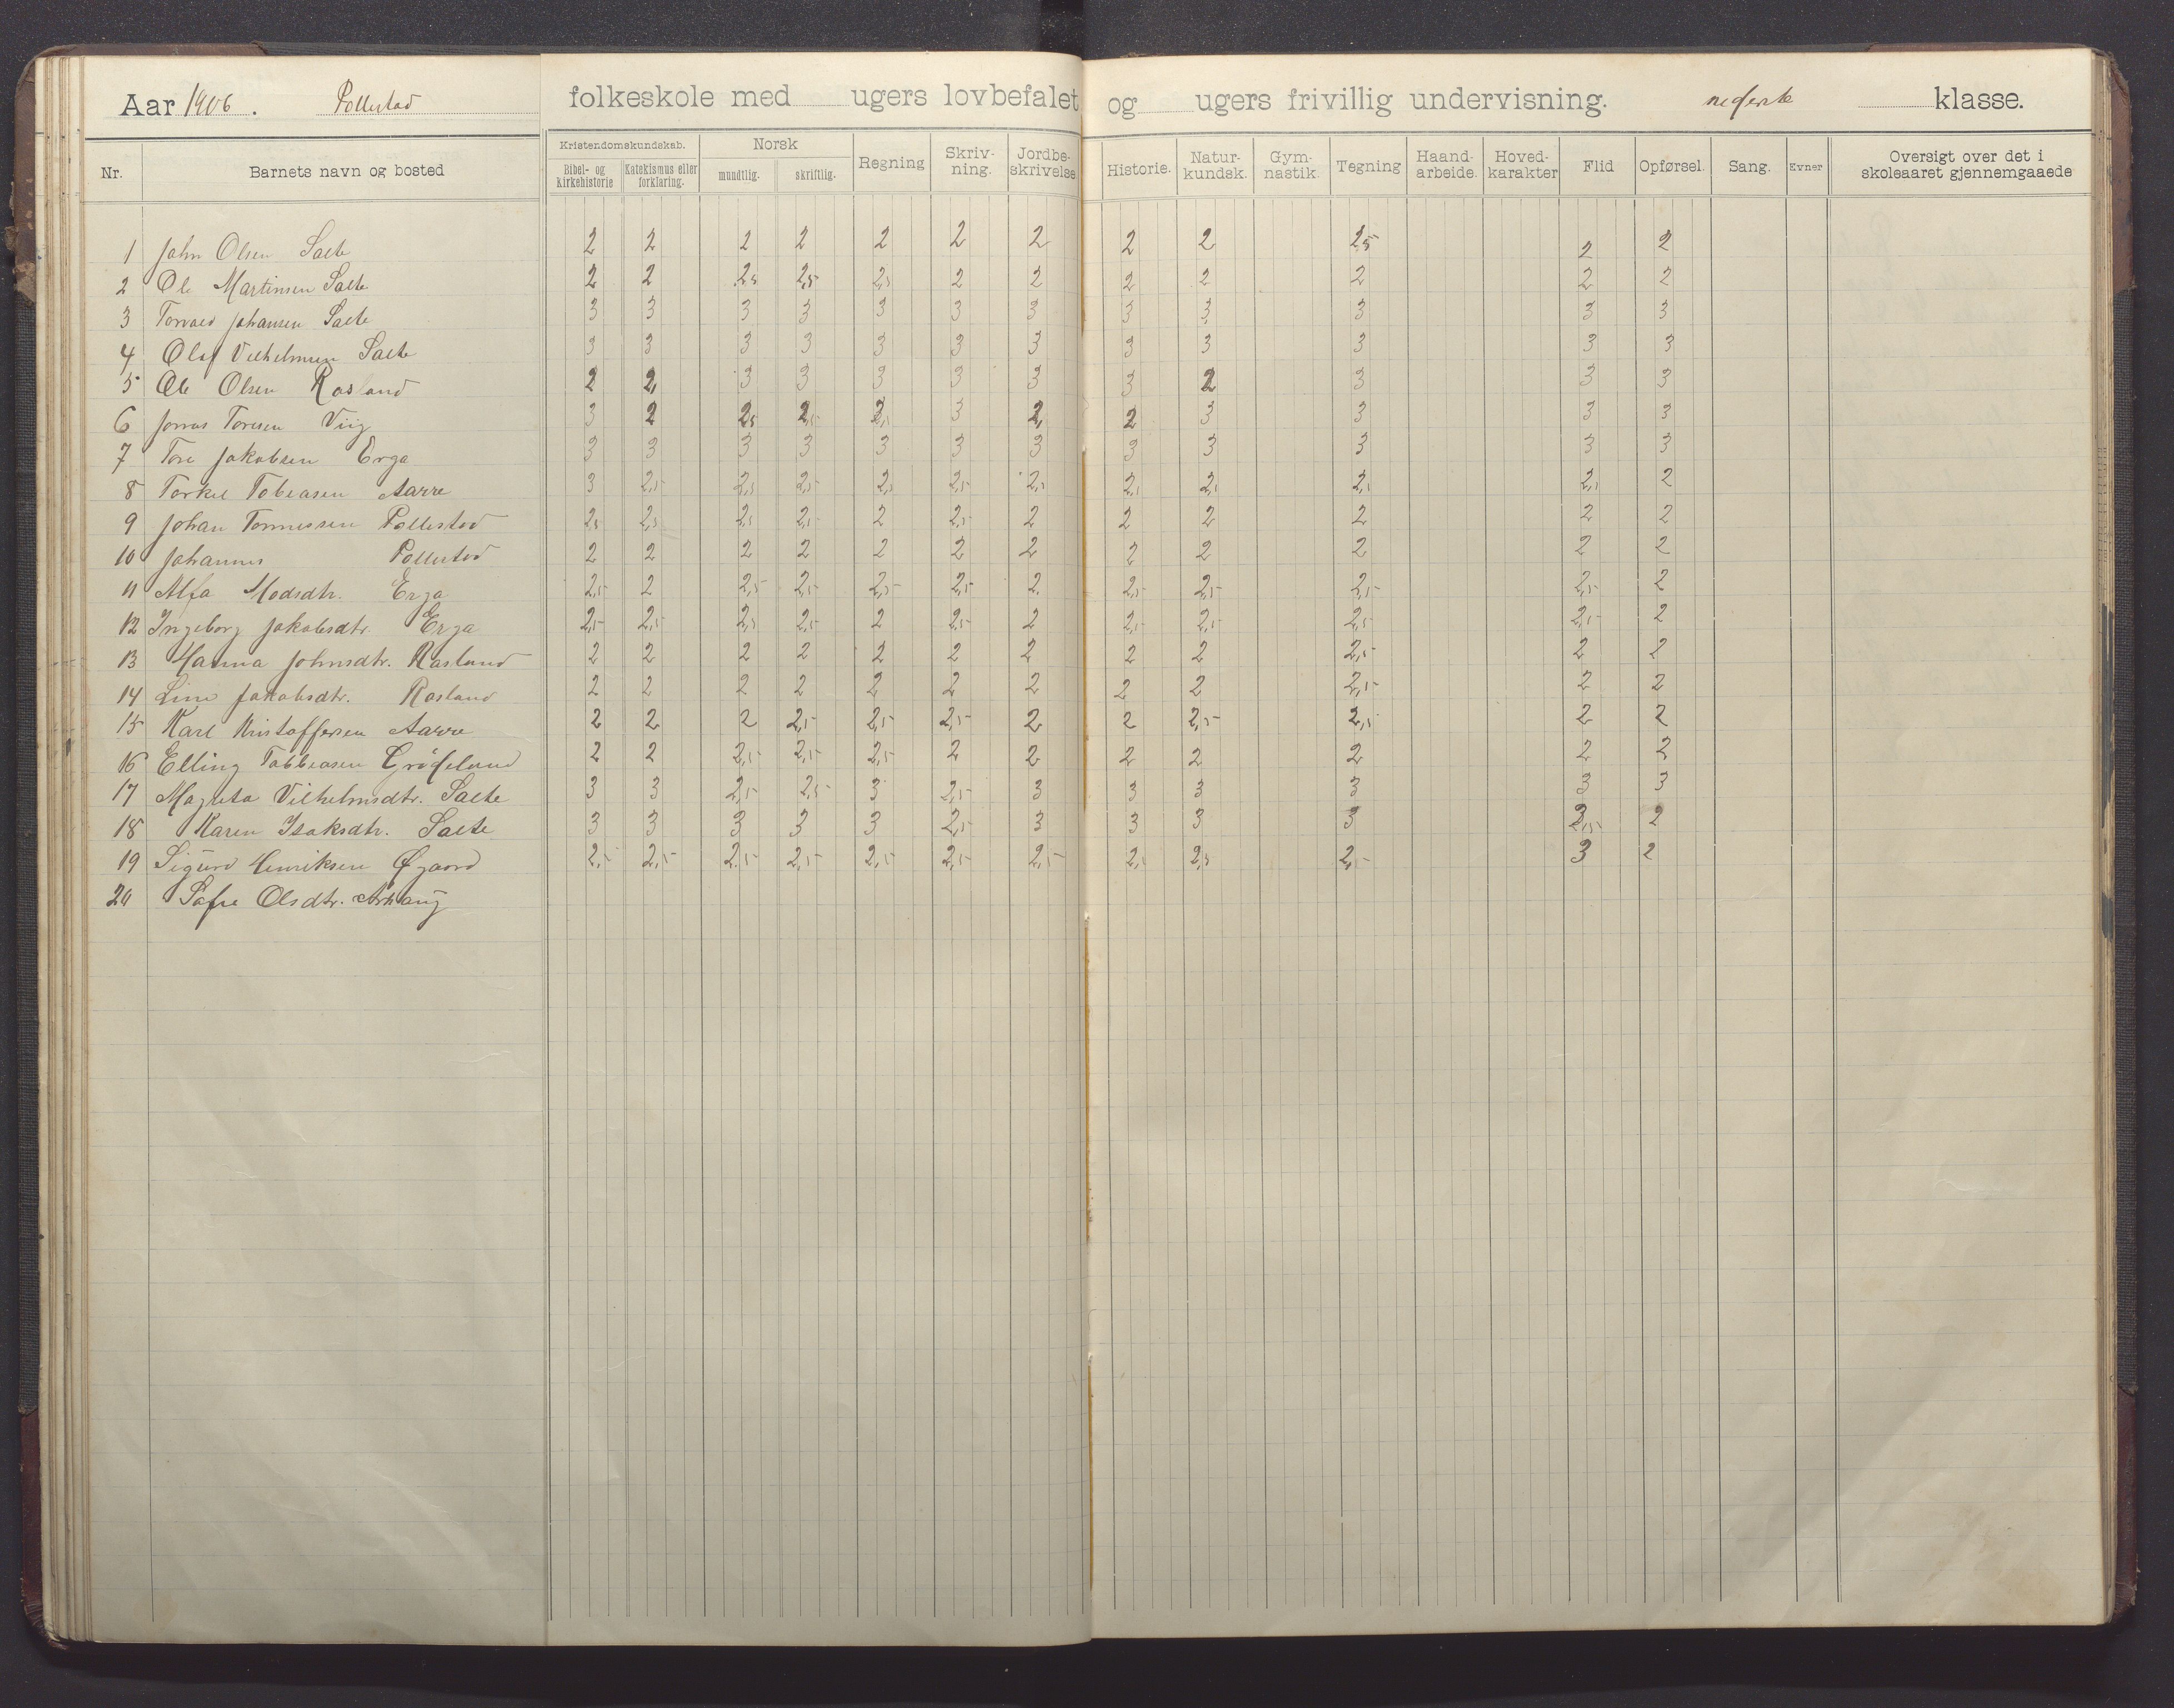 Aar 1906. Pollestad folkeskole med ugers lovbefalet og ugers frivillig undervisning. nederste klasse.
Nr. Barnets navn og bosted Kristendomskundskab. Bibel- og kirkehistorie Katekismus eller forklaring. Norsk mundtlig. skriftlig. Regning Skriv-ning. Jordbe-skrivelse Historie. Natur-kundsk. Gym-nastik. Tegning Haand-arbeide. Hoved-karakter Flid Opførsel. Sang. Evner Oversigt over det i skoleaaret gjennemgaaede
1 John Olsen Salte 2 2 2 2 2 2 2 2 2 2,5 2 2
2 Ole Martinsen Salte 2 2 2,5 2,5 2,5 2 2 2 2 2 2 2
3 Torvald Johansen Salte 3 3 3 3 3 3 3 3 3 3 3 3
4 Olaf Vilhelmsen Salte 3 3 3 3 3 3 3 3 3 3 3 3
5 Ole Olsen Rosland 2 2 3 3 3 3 3 3 2 3 3 3
6 Jonas Toresen Viig 3 2 2,5 2,5 2,5 3 2 2 3 3 3 3
7 Tore Jakobsen Erga 3 3 3 3 3 3 3 3 3 3 3 3
8 Torkel Tobiasen Aarre 3 2,5 2,5 2,5 2,5 2,5 2,5 2,5 2,5 2,5 2,5 2
9 Johan Tønnessen Pollestad 2,5 2,5 2,5 2,5 2 2,5 2 2 2 2 2 2
10 Johannes Pollestad 2 2 2 2 2 2 2 2 2 2 2 2
11 Alfa Madsdtr. Erga 2,5 2 2,5 2,5 2,5 2,5 2 2,5 2,5 2,5 2,5 2
12 Ingeborg Jakobsdtr. Erga 2,5 2,5 2,5 2,5 2 2,5 2 2,5 2,5 2,5 2,5 2
13 Hanna Johnsdtr. Rosland 2 2 2 2 2 2 2 2 2 2,5 2 2
14 Line Jakobsdtr. Rosland 2 2 2 2 2 2 2 2 2 2,5 2 2
15 Karl Kristoffersen Aarre 2 2 2 2,5 2,5 2,5 2 2 2,5 2,5 2 2
16 Elling Tobbiasen Grødeland 2 2 2,5 2,5 2,5 2 2 2 2 2 2 2
17 Magreta Vilhelmsdtr. Salte 3 3 2,5 2,5 3 2,5 3 3 3 3 3 3
18 Karen Isaksdtr. Salte 3 3 3 3 3 2,5 3 3 3 3 2,5 2
19 Sigurd Henriksen Øgaard 2,5 2,5 2,5 2,5 2,5 2,5 2,5 2,5 2,5 2,5 3 2
20 Sofie Olsdtr.